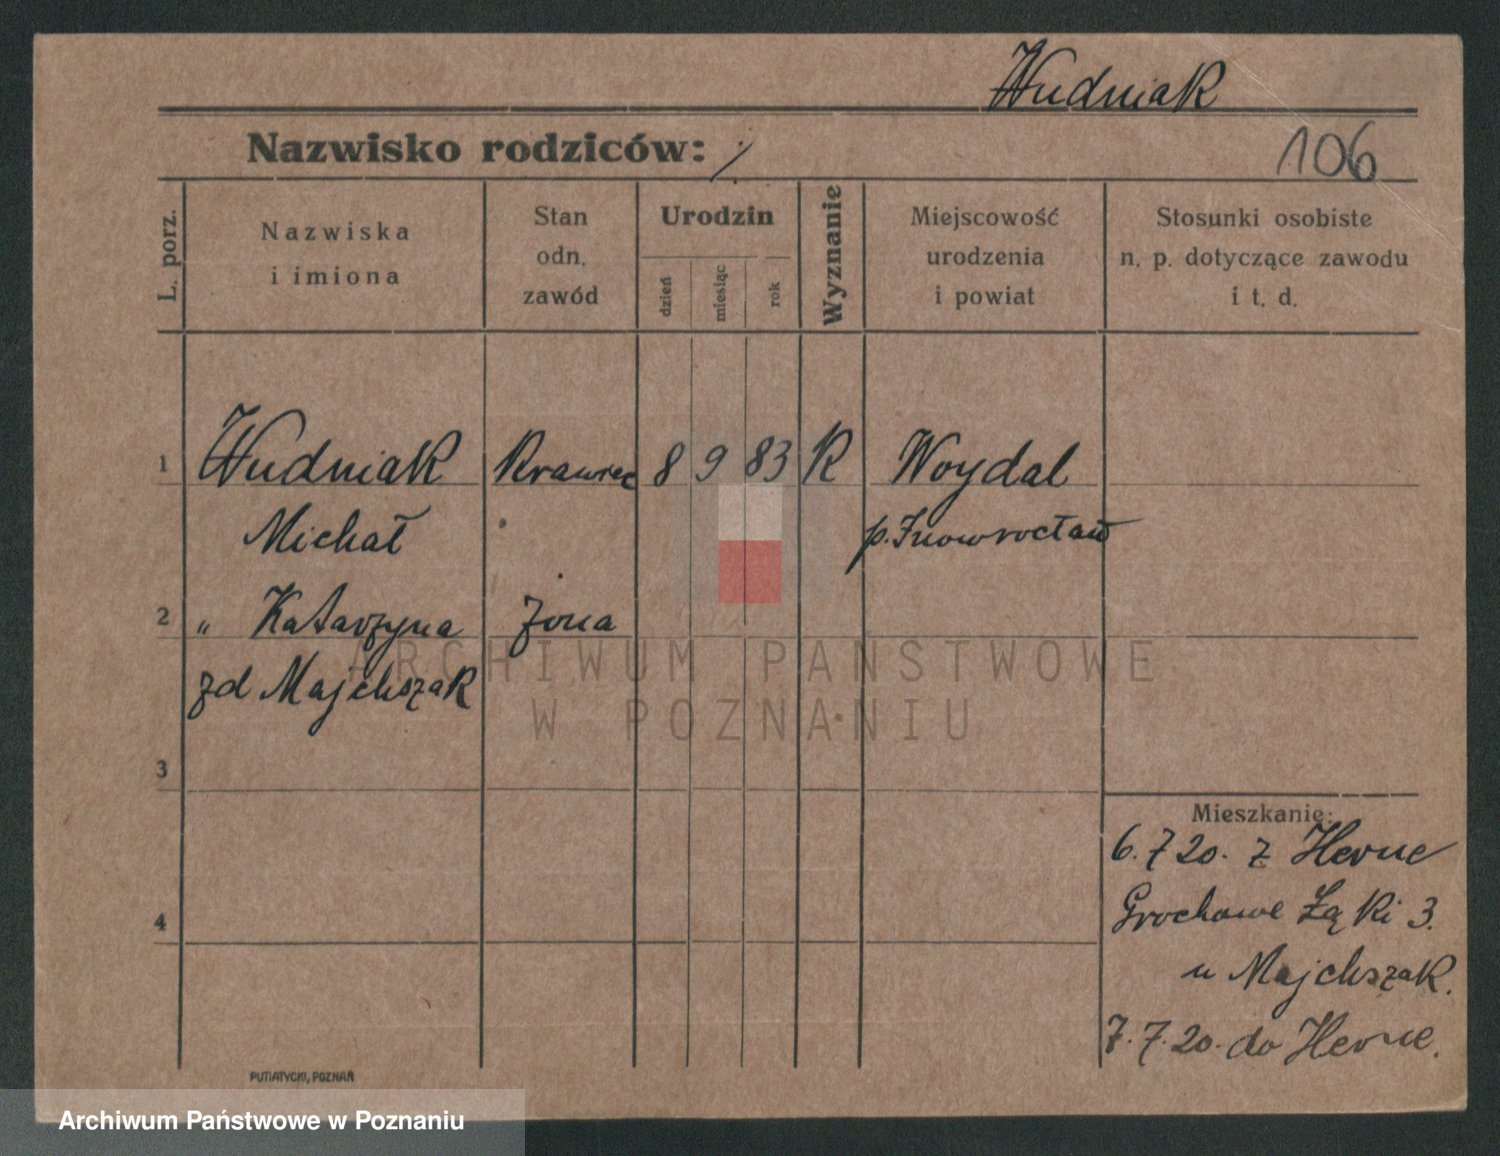 Wudniak
Nazwisko rodziców: /.
106
L. porz.
Nazwiska
i imiona
Stan
odn.
zawód
Urodzin
dzień
miesiąc
rok
Wyznanie
Miejscowość
urodzenia
i powiat
Stosunki osobiste
n. p. dotyczące zawodu
i t. d.
1 Wudniak Krawiec 8 9 83 K Woydal
Michał p. Inowrocław
2 " Katarzyna żona
zd Majchszak
3
4
Mieszkanie:
6.7 20. z Herne
Grochowe Łąki 3.
u Majchszak.
7.7.20. do Herne.
PUTIATYCKI, POZNAŃ
ARCHIWUM PAŃSTWOWE
W POZNANIU
Archiwum Państwowe w Poznaniu